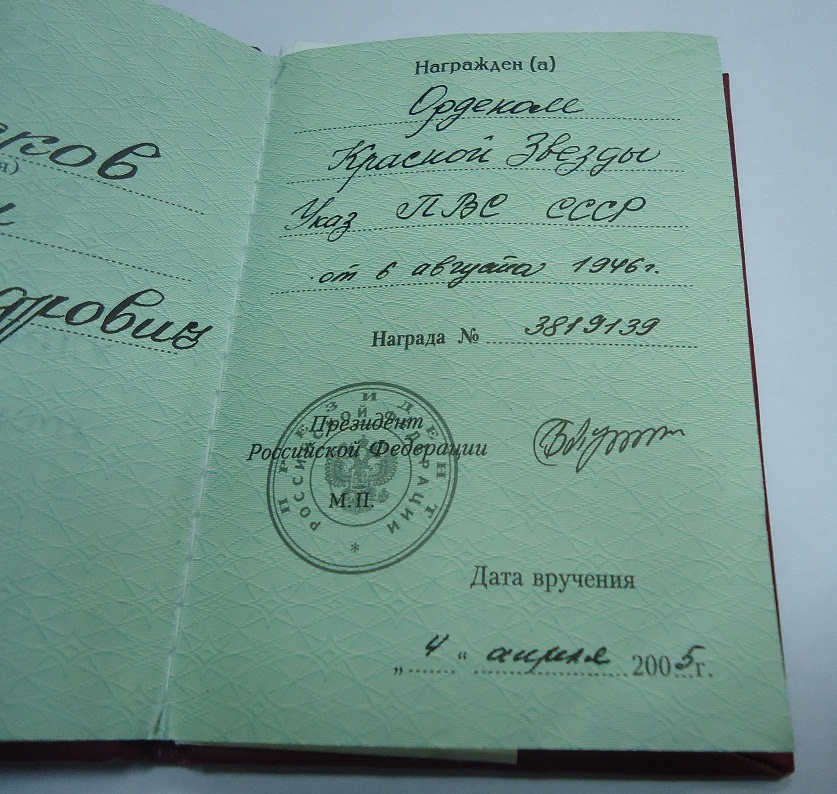 ков
дрович
Награжден (а)
Орденом
Красной Звезды
Указ ПВС СССР
от 6 августа 1946г.
Награда № 3819139
ПРЕЗИДЕНТ
РОССИЙСКОЙ ФЕДЕРАЦИИ
Президент
Российской Федерации
М.П.
Дата вручения
„ 4 “ апреля 2005г.